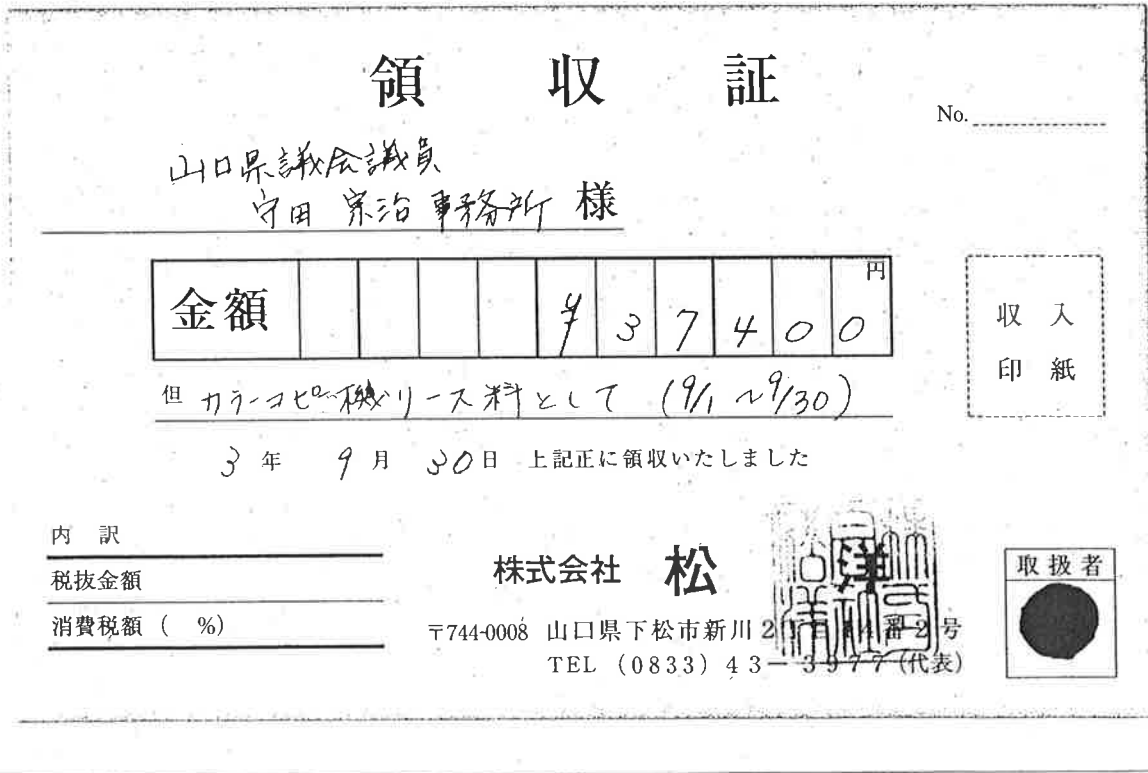 領収証
No.
山口県議会議員
守田 宗治 事務所 様
金額 ¥37400円
但 カラーコピー機リース料として (9/1〜9/30)
3年 9月 30日 上記正に領収いたしました
収入
印紙
内訳
税抜金額
消費税額 ( %)
株式会社 松洋
〒744-0008 山口県下松市新川2丁目4番2号
TEL (0833) 43-3977(代表)
取扱者